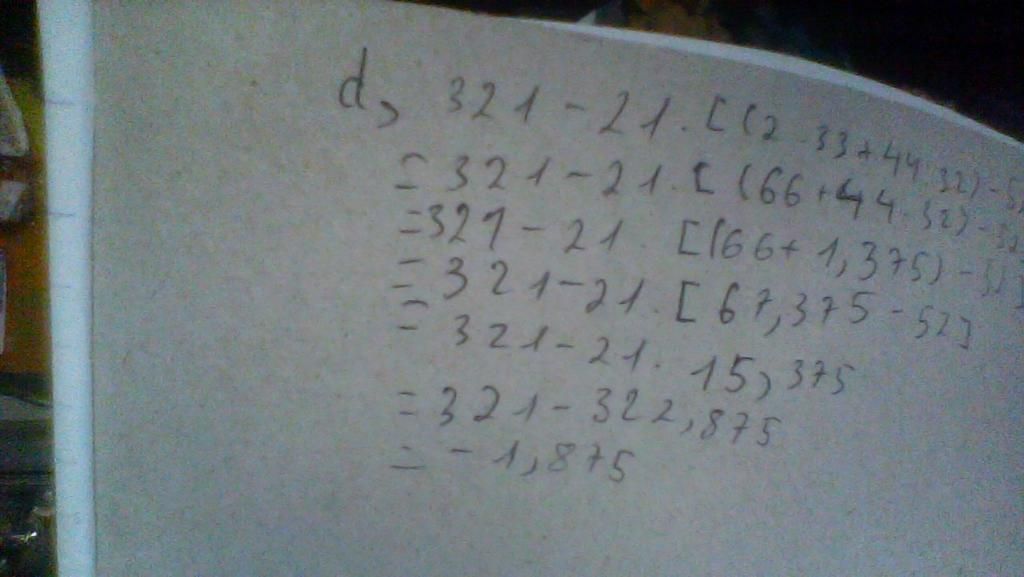 d, 321 - 21 . [ (2 . 33 + 44 : 32) - 52]
= 321 - 21 . [ (66 + 44 : 32) - 52
= 321 - 21 . [(66 + 1,375) - 52]
= 321 - 21 . [ 67,375 - 52]
= 321 - 21 . 15,375
= 321 - 322,875
= - 1,875